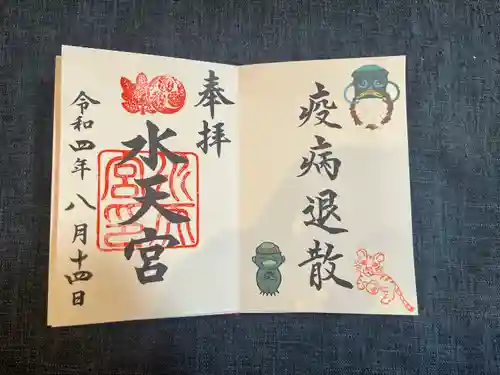 疫病退散
奉拝
水天宮
水天宮印
令和四年八月十四日